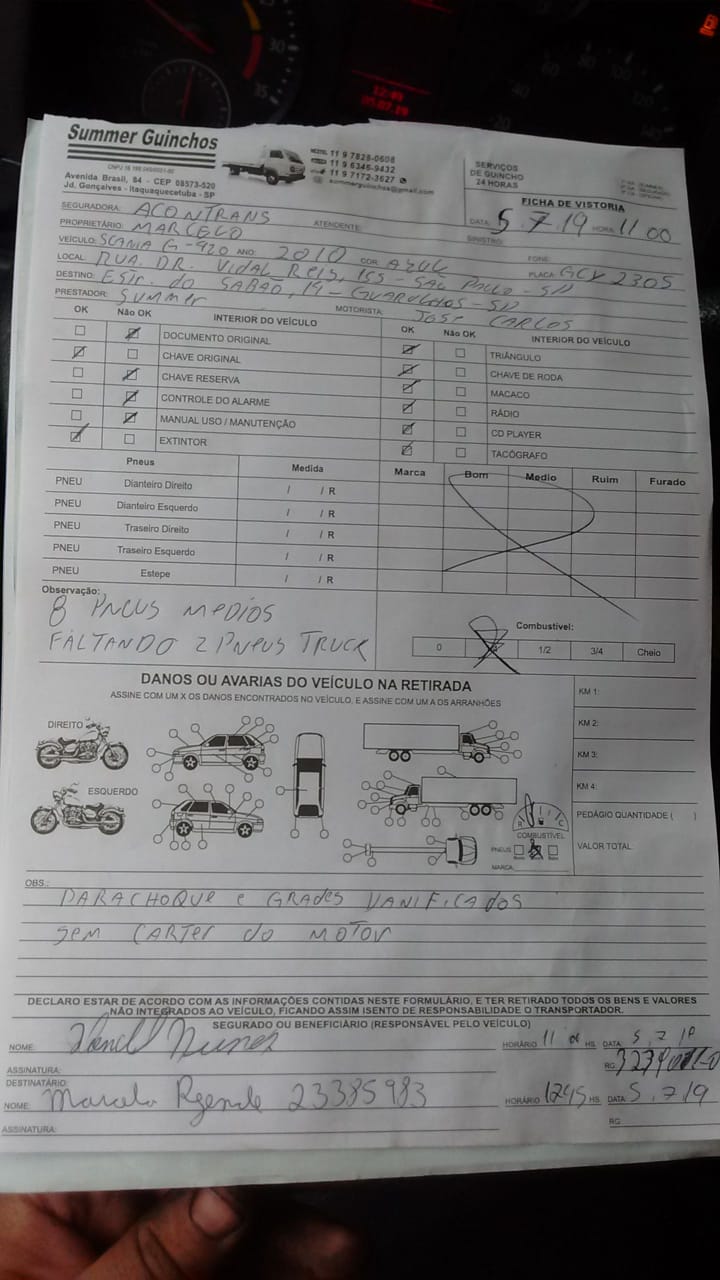 Summer Guinchos
Avenida Brasil, 84 - CEP 08573-520
Jd. Gonçalves - Itaquaquecetuba - SP
11 9 7828-0608
11 9 6346-9432
11 9 7172-3627
summerguinchos@gmail.com
SERVIÇOS
DE GUINCHO
24 HORAS
FICHA DE VISTORIA
DATA: 5.7.19 HORA: 11 00
SEGURADORA: ACONTRANS ATENDENTE: SINISTRO:
PROPRIETÁRIO: MARCELO FONE:
VEÍCULO: SCANIA G-420 ANO: 2010 COR: AZUL PLACA: GCV 2305
LOCAL: RUA. DR. Vidal Reis, 155 - SÃO PAULO - SP
DESTINO: Estr. do SABÃO, 19 - GUARULHOS - SP
PRESTADOR: SUMMER MOTORISTA: JOSE CARLOS
OK Não OK INTERIOR DO VEÍCULO OK Não OK INTERIOR DO VEÍCULO
DOCUMENTO ORIGINAL TRIÂNGULO
CHAVE ORIGINAL CHAVE DE RODA
CHAVE RESERVA MACACO
CONTROLE DO ALARME RÁDIO
MANUAL USO / MANUTENÇÃO CD PLAYER
EXTINTOR TACÓGRAFO
Pneus Medida Marca Bom Medio Ruim Furado
PNEU Dianteiro Direito / / R
PNEU Dianteiro Esquerdo / / R
PNEU Traseiro Direito / / R
PNEU Traseiro Esquerdo / / R
PNEU Estepe / / R
Observação:
8 PNEUS MEDIOS
FALTANDO 2 PNEUS TRUCK
Combustível:
0 1/2 3/4 Cheio
DANOS OU AVARIAS DO VEÍCULO NA RETIRADA
ASSINE COM UM X OS DANOS ENCONTRADOS NO VEÍCULO, E ASSINE COM UM A OS ARRANHÕES
DIREITO
ESQUERDO
KM 1:
KM 2:
KM 3:
KM 4:
PEDÁGIO QUANTIDADE ( )
VALOR TOTAL
COMBUSTÍVEL
PNEUS
MARCA:
OBS.:
PARACHOQUE e GRADES DANIFICADOS
SEM CARTER do MOTOR
DECLARO ESTAR DE ACORDO COM AS INFORMAÇÕES CONTIDAS NESTE FORMULÁRIO, E TER RETIRADO TODOS OS BENS E VALORES
NÃO INTEGRADOS AO VEÍCULO, FICANDO ASSIM ISENTO DE RESPONSABILIDADE O TRANSPORTADOR.
SEGURADO OU BENEFICIÁRIO (RESPONSÁVEL PELO VEÍCULO)
NOME: Nunes HORÁRIO 11 HS. DATA 5.7.19
ASSINATURA: RG:
DESTINATÁRIO:
NOME: Marcelo 23385983 HORÁRIO 1245 HS. DATA: 5.7.19
ASSINATURA: RG: